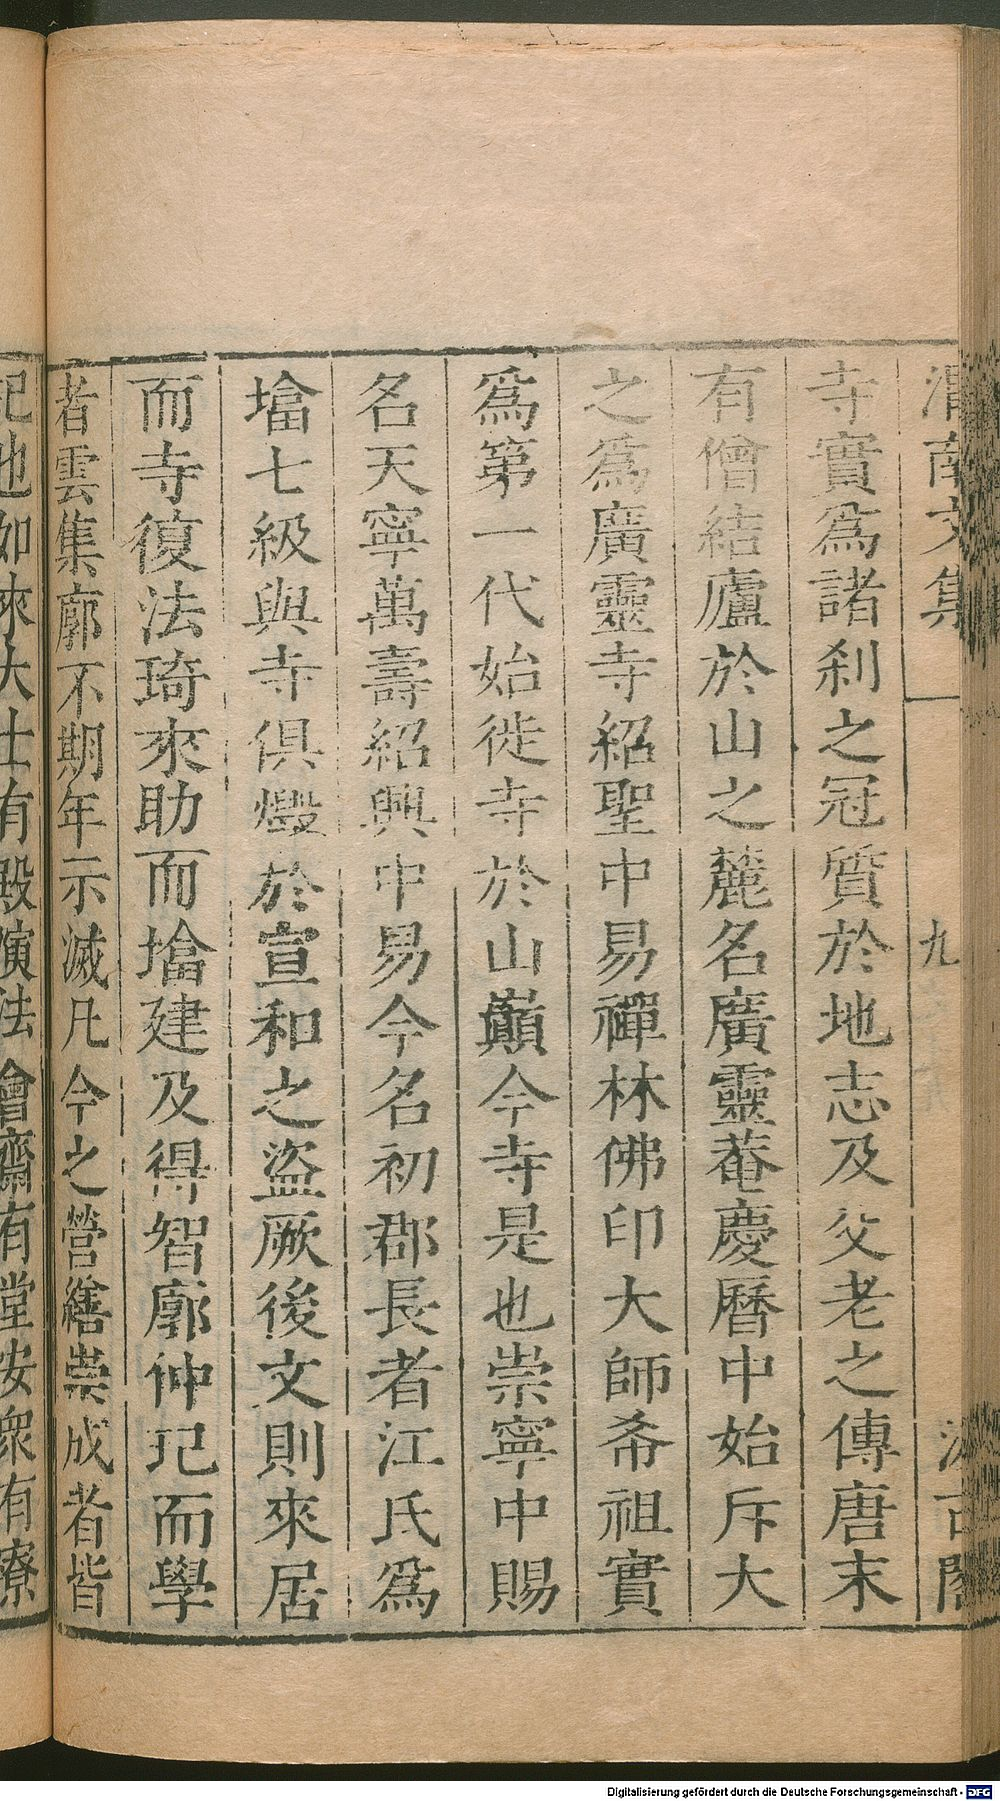 渭南文集 九 汲古閣
寺實爲諸刹之冠質於地志及父老之傳唐末
有僧結廬於山之麓名廣靈菴慶曆中始斥大
之爲廣靈寺紹聖中易禪林佛印大師希祖實
爲第一代始徙寺於山巔今寺是也崇寧中賜
名天寧萬壽紹興中易今名初郡長者江氏爲
墖七級與寺俱燬於宣和之盜厥後文則來居
而寺復法琦來助而墖建及得智廓仲玘而學
者雲集廓不期年示滅凡今之營繕崇成者皆
玘也如來大士有殿演法會齋有堂安衆有寮
Digitalisierung gefördert durch die Deutsche Forschungsgemeinschaft - DFG